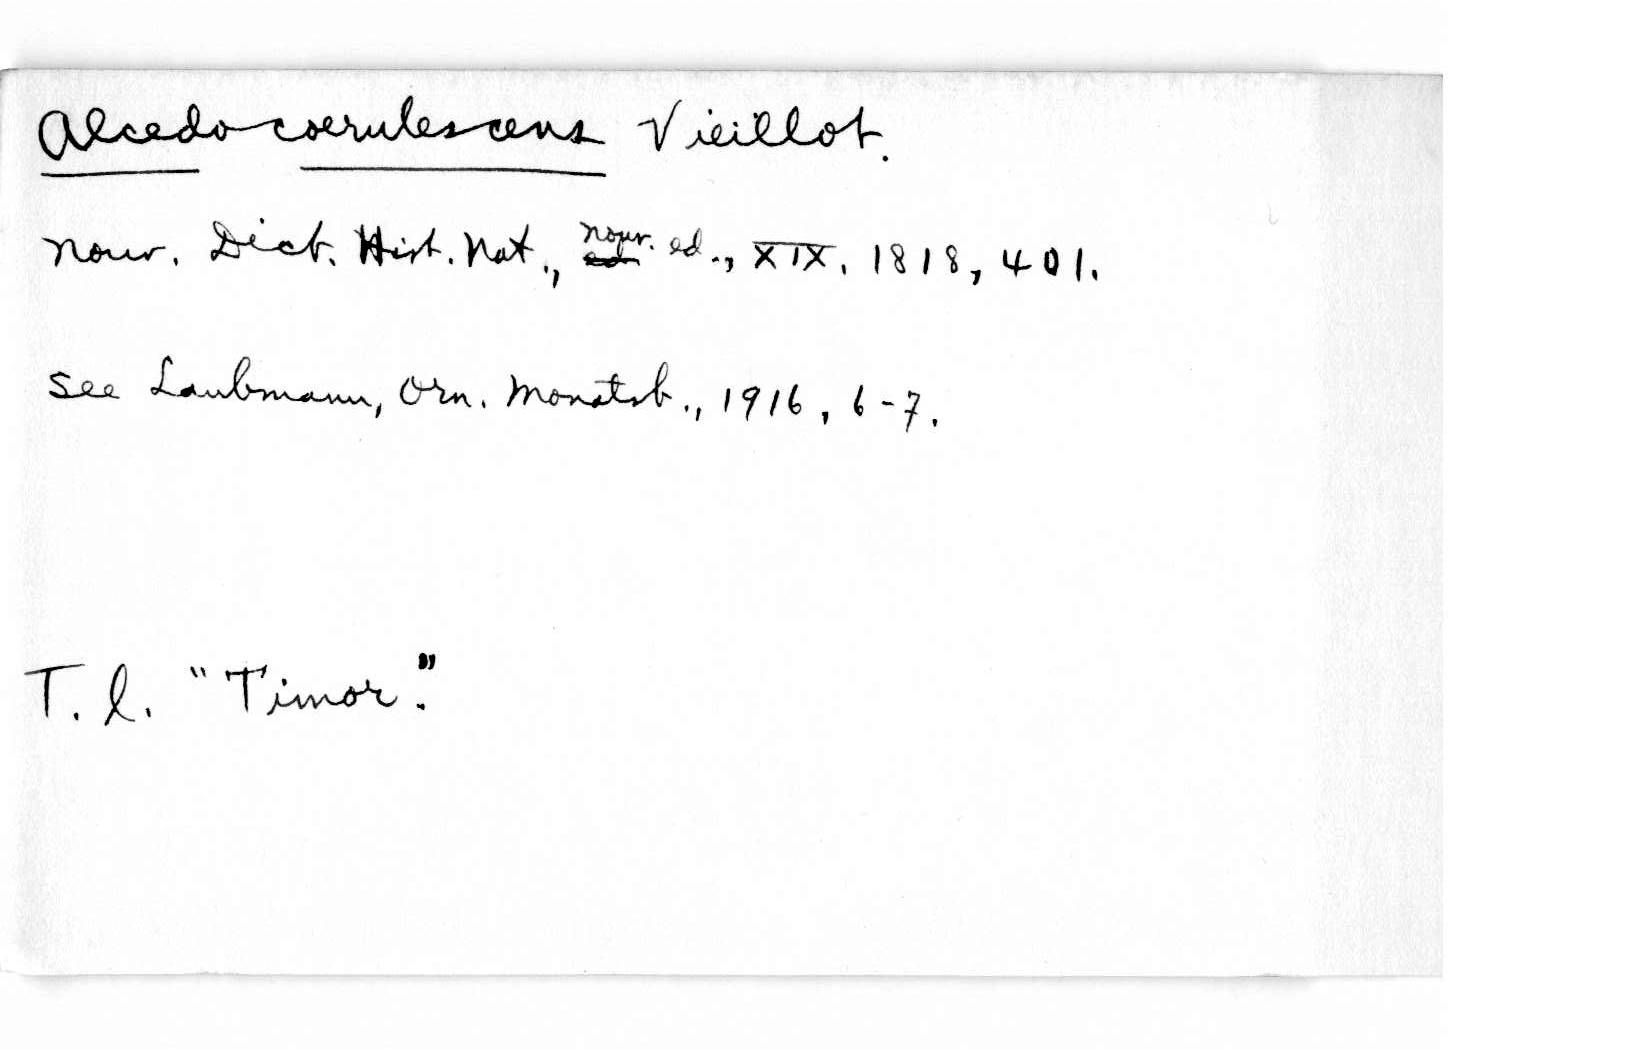 Alcedo coerulescens Vieillot.
Nouv. Dict. Hist. Nat., nouv. ed., XIX, 1818, 401.
See Laubmann, Orn. Monatsb., 1916, 6-7.
T. l. "Timor."